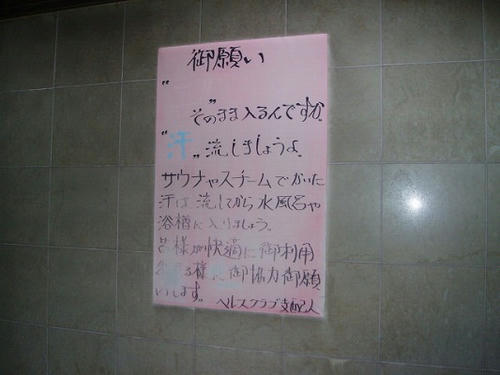 御願い
"
そ"のまま入るんですか、
"汗"流しましょうよ
サウナやスチームでかいた
汗は流してから水風呂や
浴槽に入りましょう。
皆様が快適に御利用
る様に御協力御願
いします。
ヘルスクラブ支配人